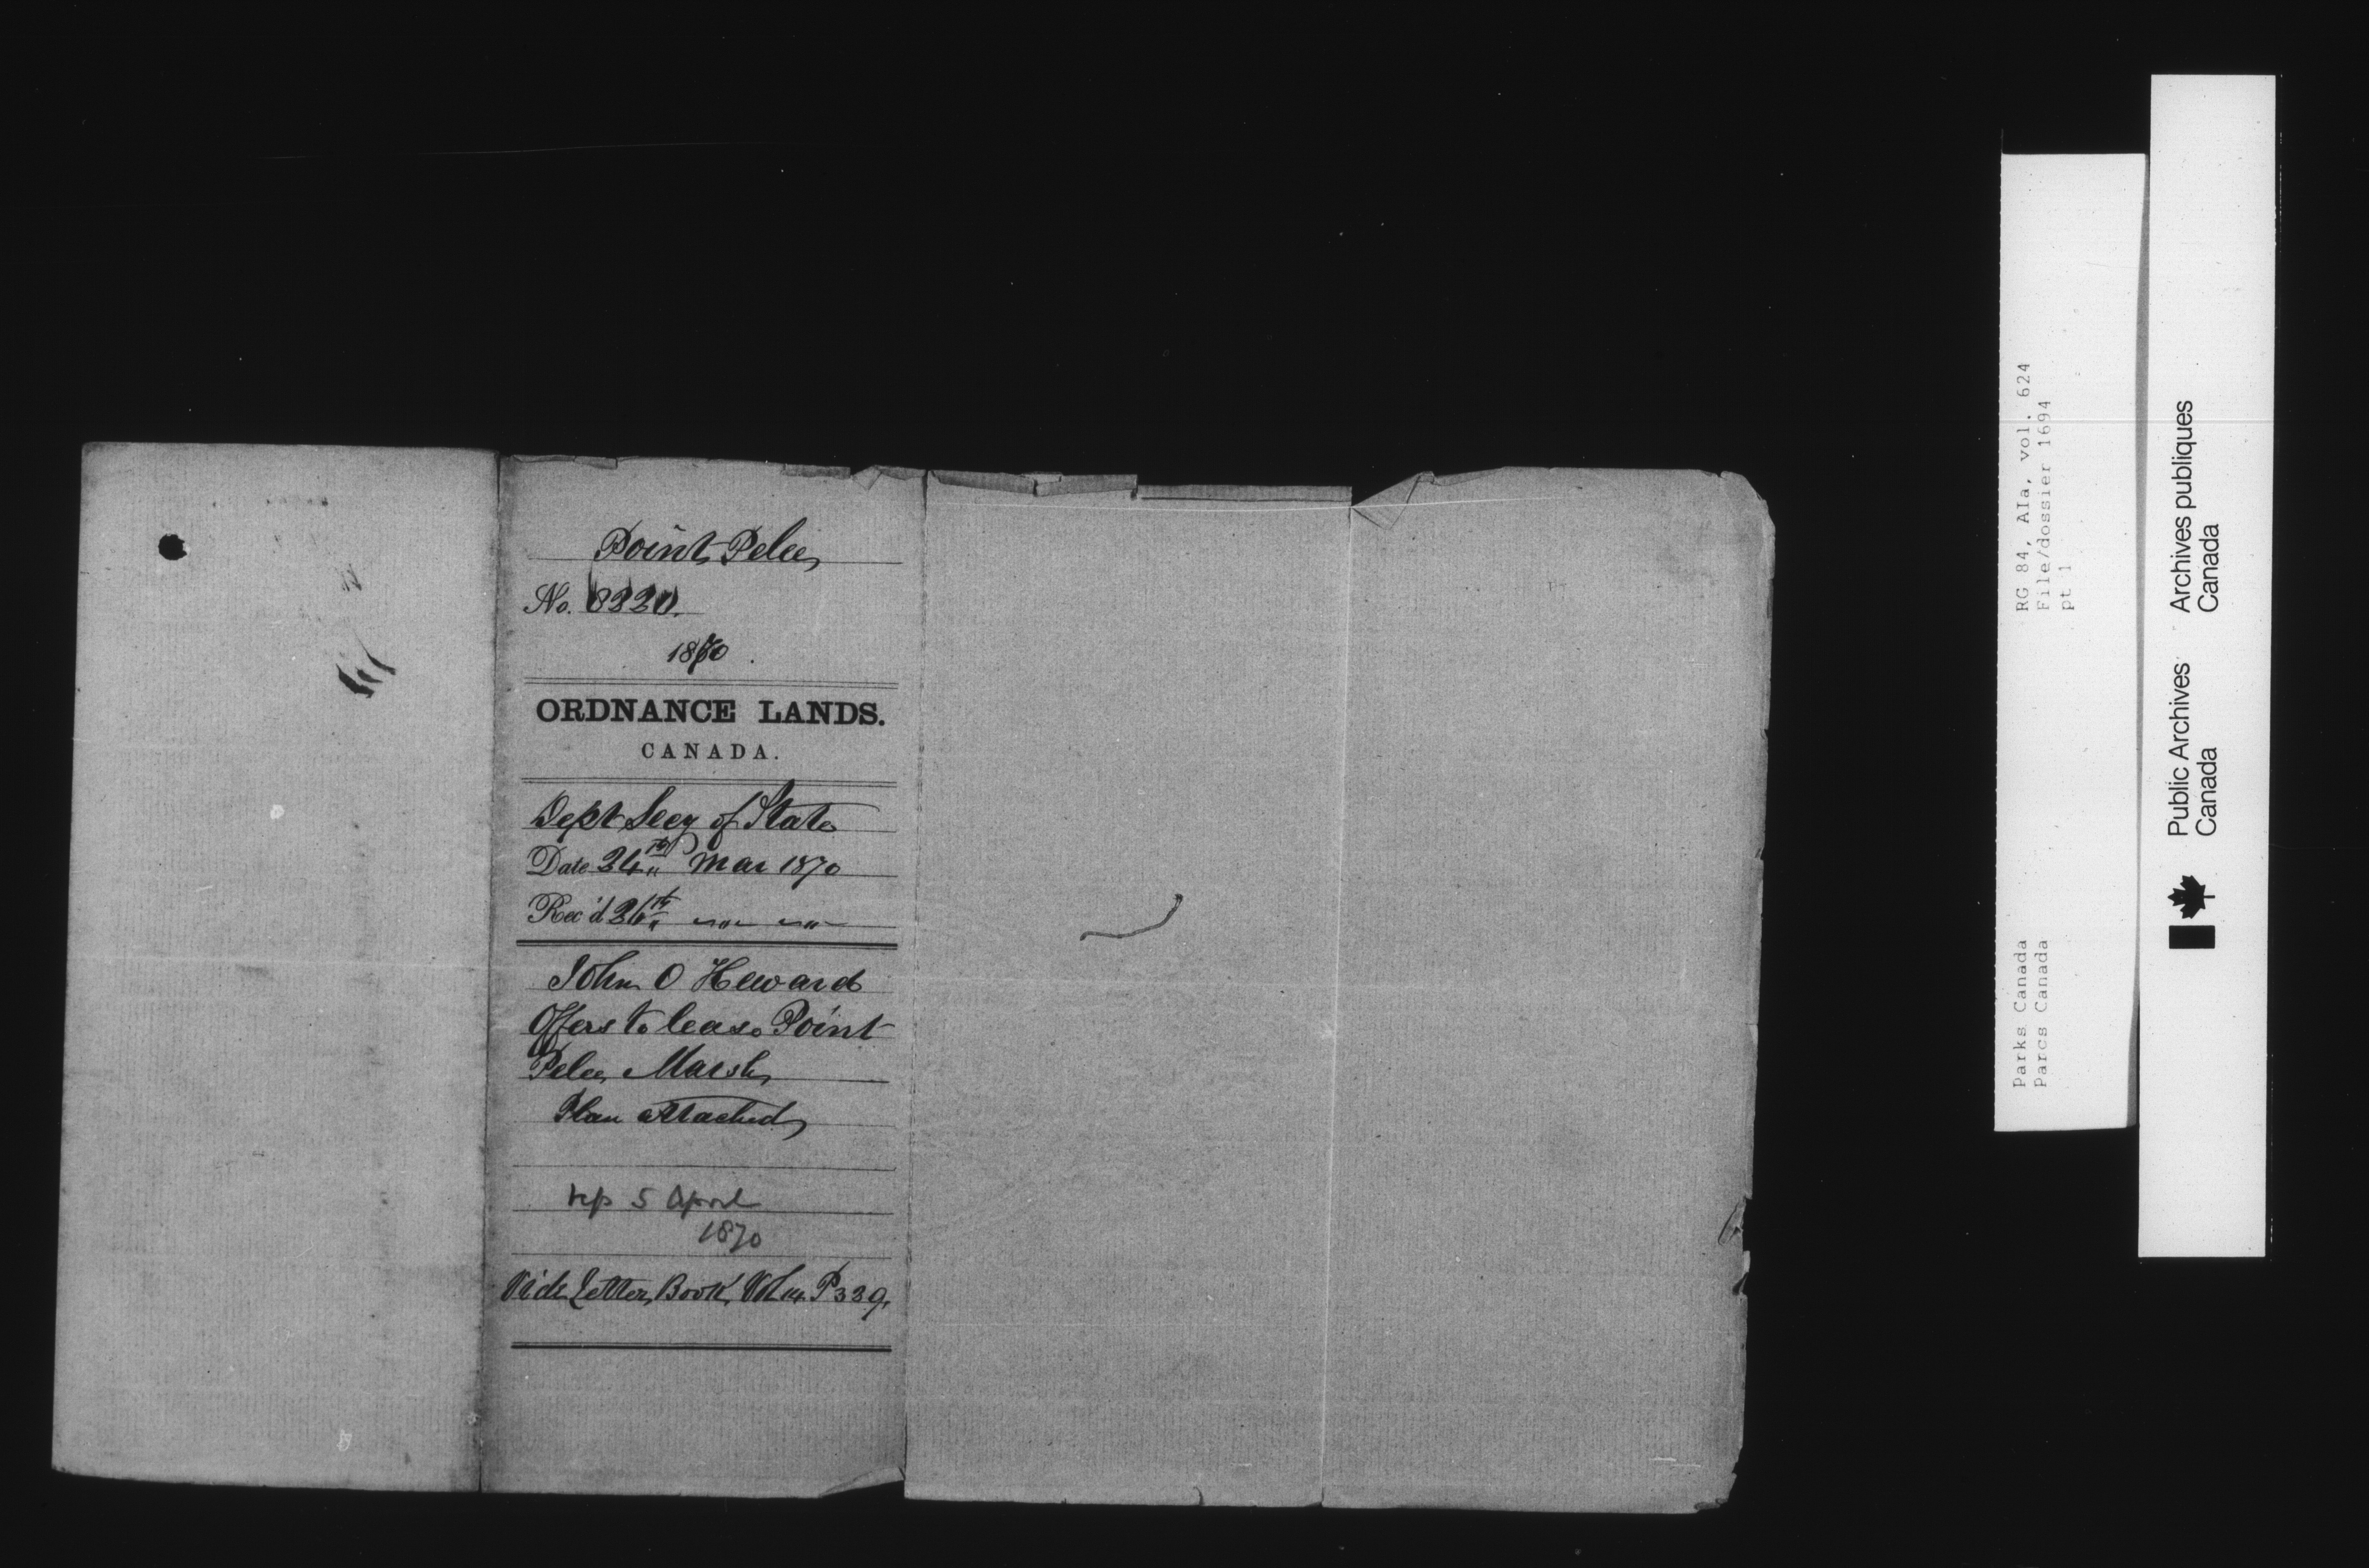 Point Pelee
No. 8220.
1870.
ORDNANCE LANDS.
CANADA.
Dept Secy of State
Date 24th Mar 1870
Rec'd 26th " "
John O Heward
Offers to lease Point
Pelee Marsh
Plan attached
rep 5 April
1870
Vide Letter Book, Vol 14 P 339.
RG 84, AIa, vol. 624
File/dossier 1694
pt 1
Parks Canada
Parcs Canada
Public Archives
Canada
Archives publiques
Canada